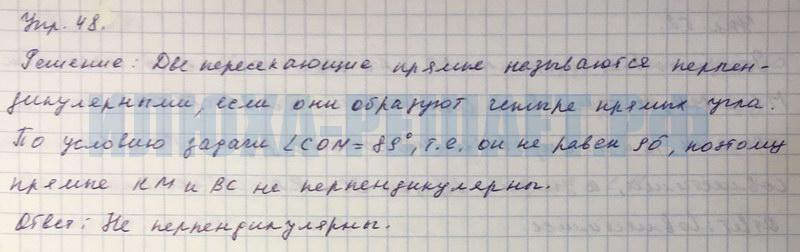 Упр. 48.
Решение: Две пересекающие прямые называются перпен-
дикулярными, если они образуют четыре прямых угла.
По условию задачи ∠COM = 89°, т.е. он не равен 90°, поэтому
прямые KM и BC не перпендикулярны.
Ответ: Не перпендикулярны.